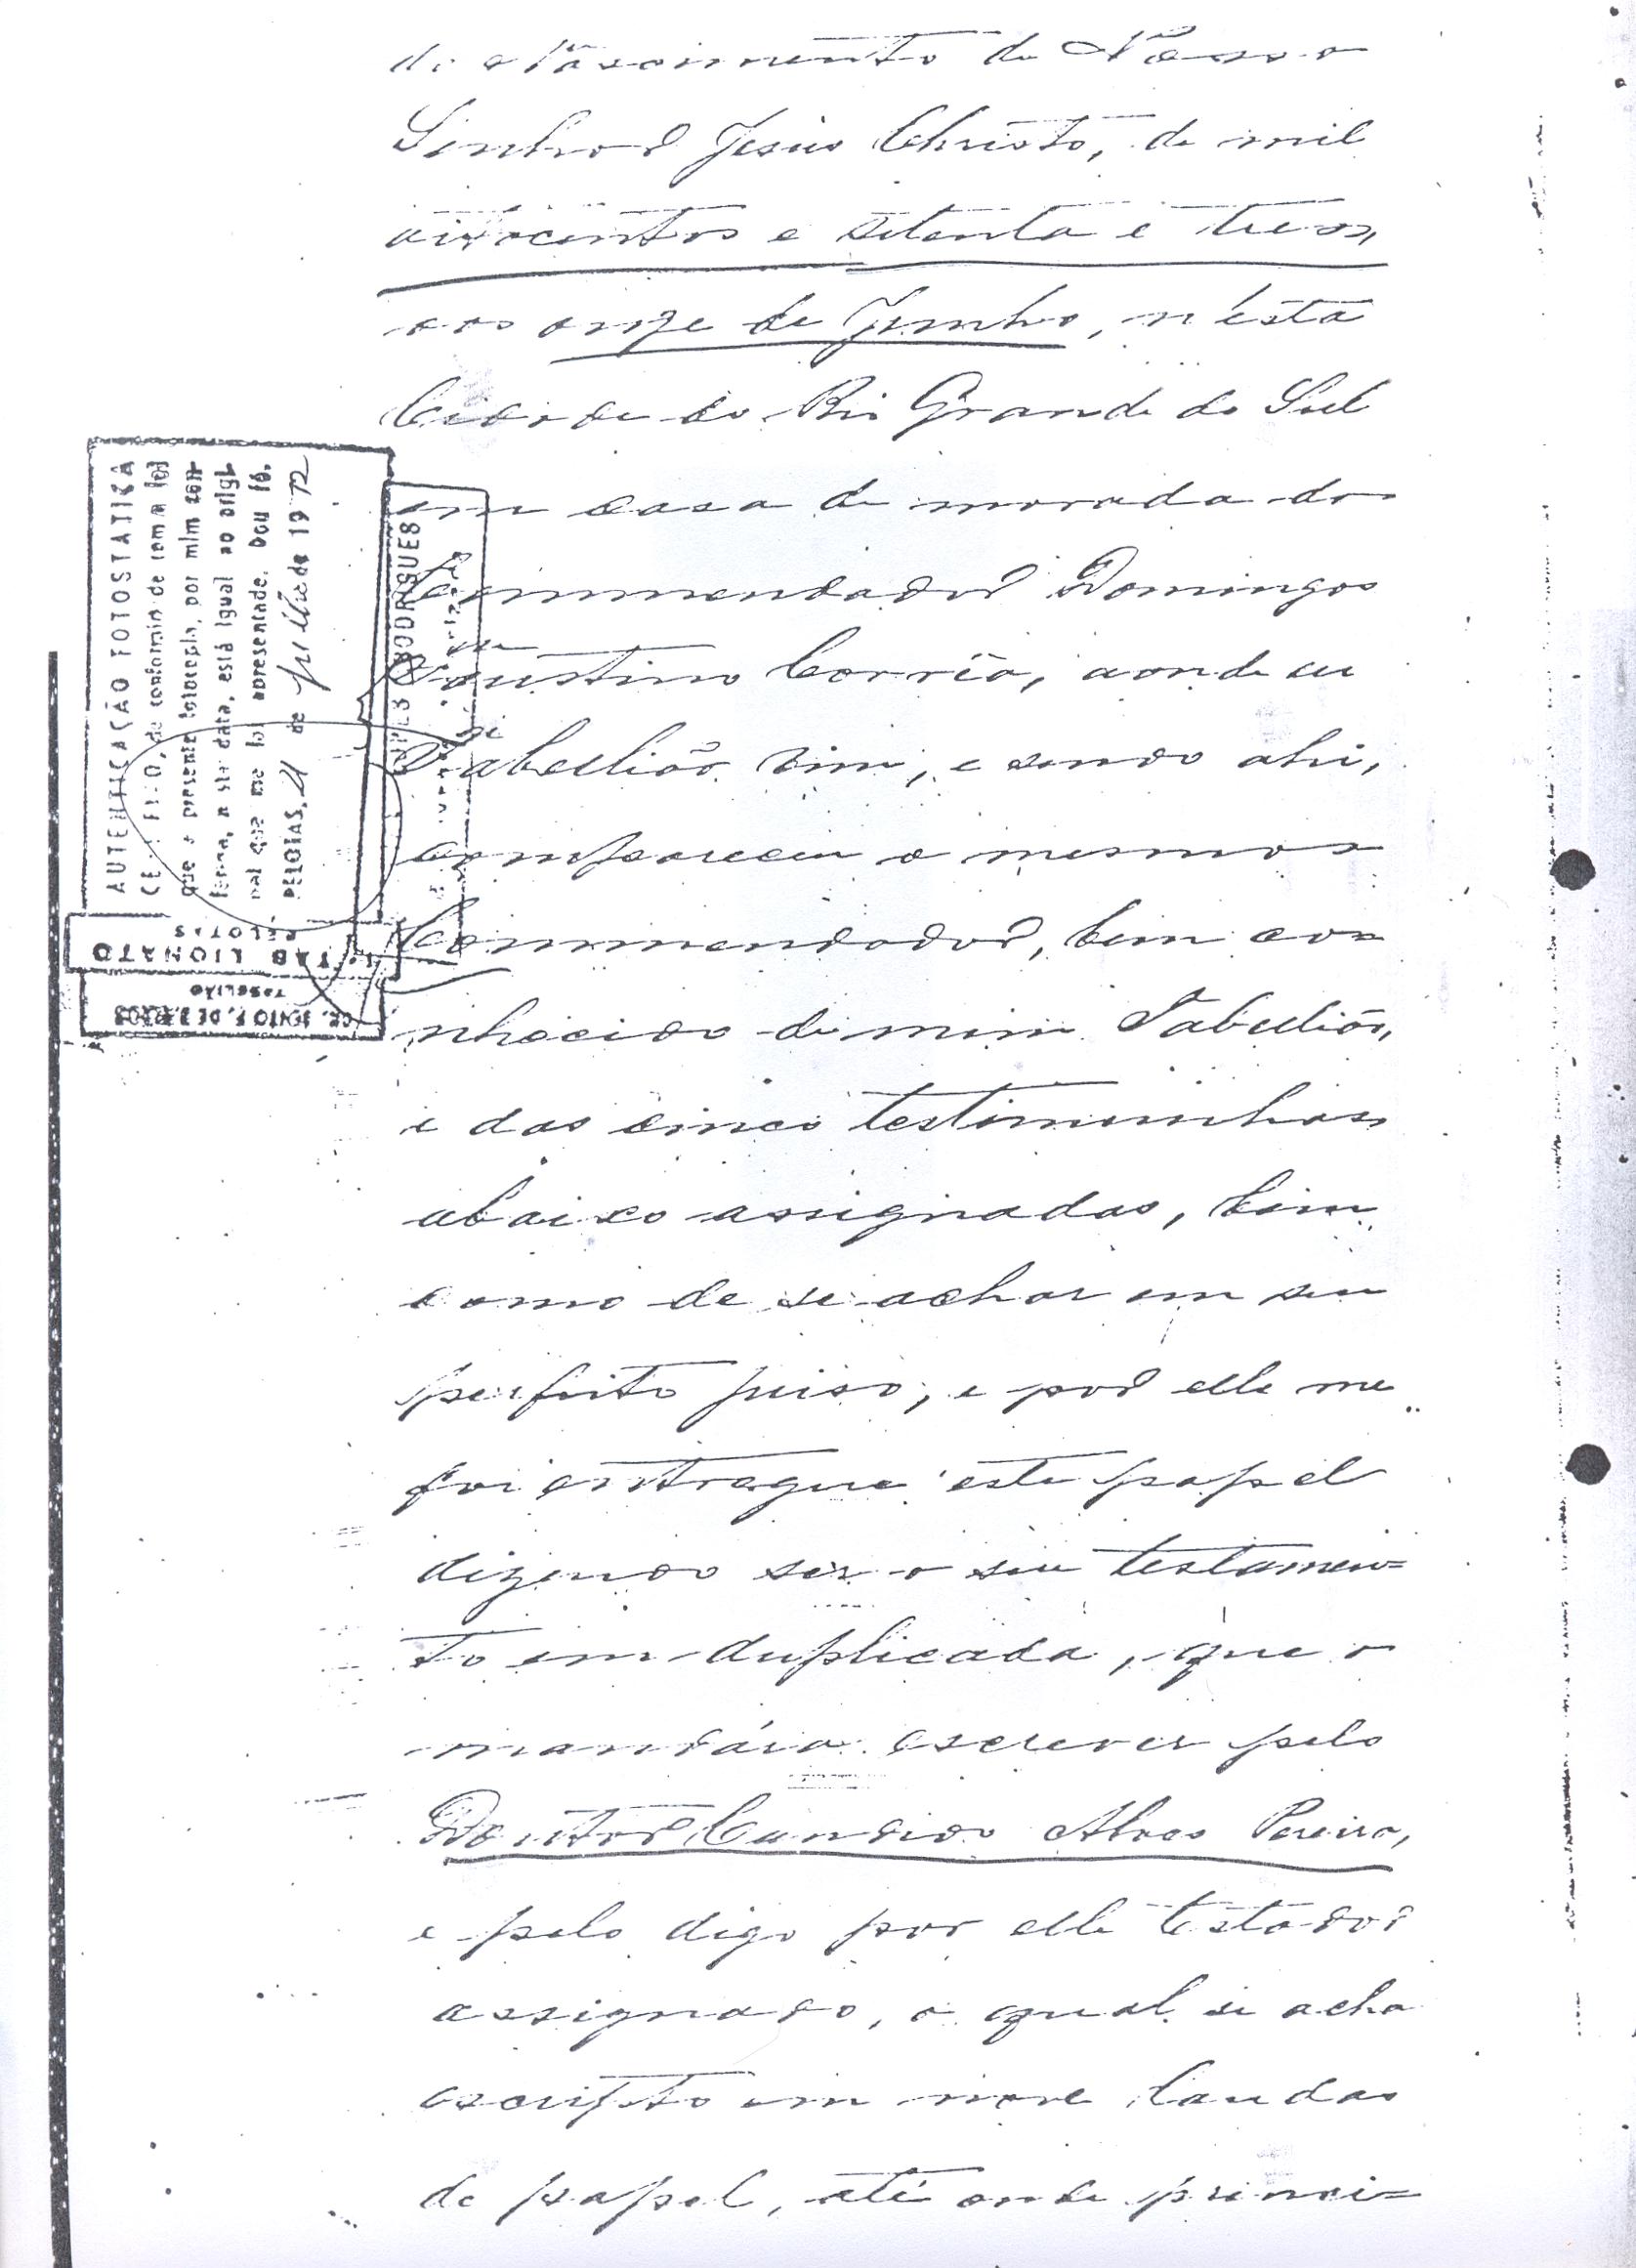 do Nascimento de Nosso
Senhor Jesus Christo, de mil
oitocentos e setenta e tres,
aos onze de Junho, n'esta
Cidade do Rio Grande do Sul
em casa de morada do
Commendador Domingos
Faustino Corrêa, aonde eu
Tabellião vim, e sendo ahi,
compareceu o mesmo
Commendador, bem co-
nhecido de mim Tabellião,
e das cinco testimunhas
abaixo assignadas, bem
como de se achar em seu
perfeito juiso, e por elle me
foi entregue este papel
dizendo ser o seu testamen=
to em duplicada, que o
mandára escrever pelo
Doutor Candido Alves Pereira,
e pelo digo por elle testador
assignado, o qual se acha
escripto em nove laudas
de papel, até onde princi=
AUTENTICAÇÃO FOTOSTATICA
CERTIFICO, de conformide com a lei
que a presente fotocopia, por mim con-
fer da, n sta data, está igual ao origi-
nal que me foi apresentado. Dou fé.
PELOTAS, 21 de julho de 1972
RODRIGUES
TABELIONATO
PELOTAS
TABELIÃO